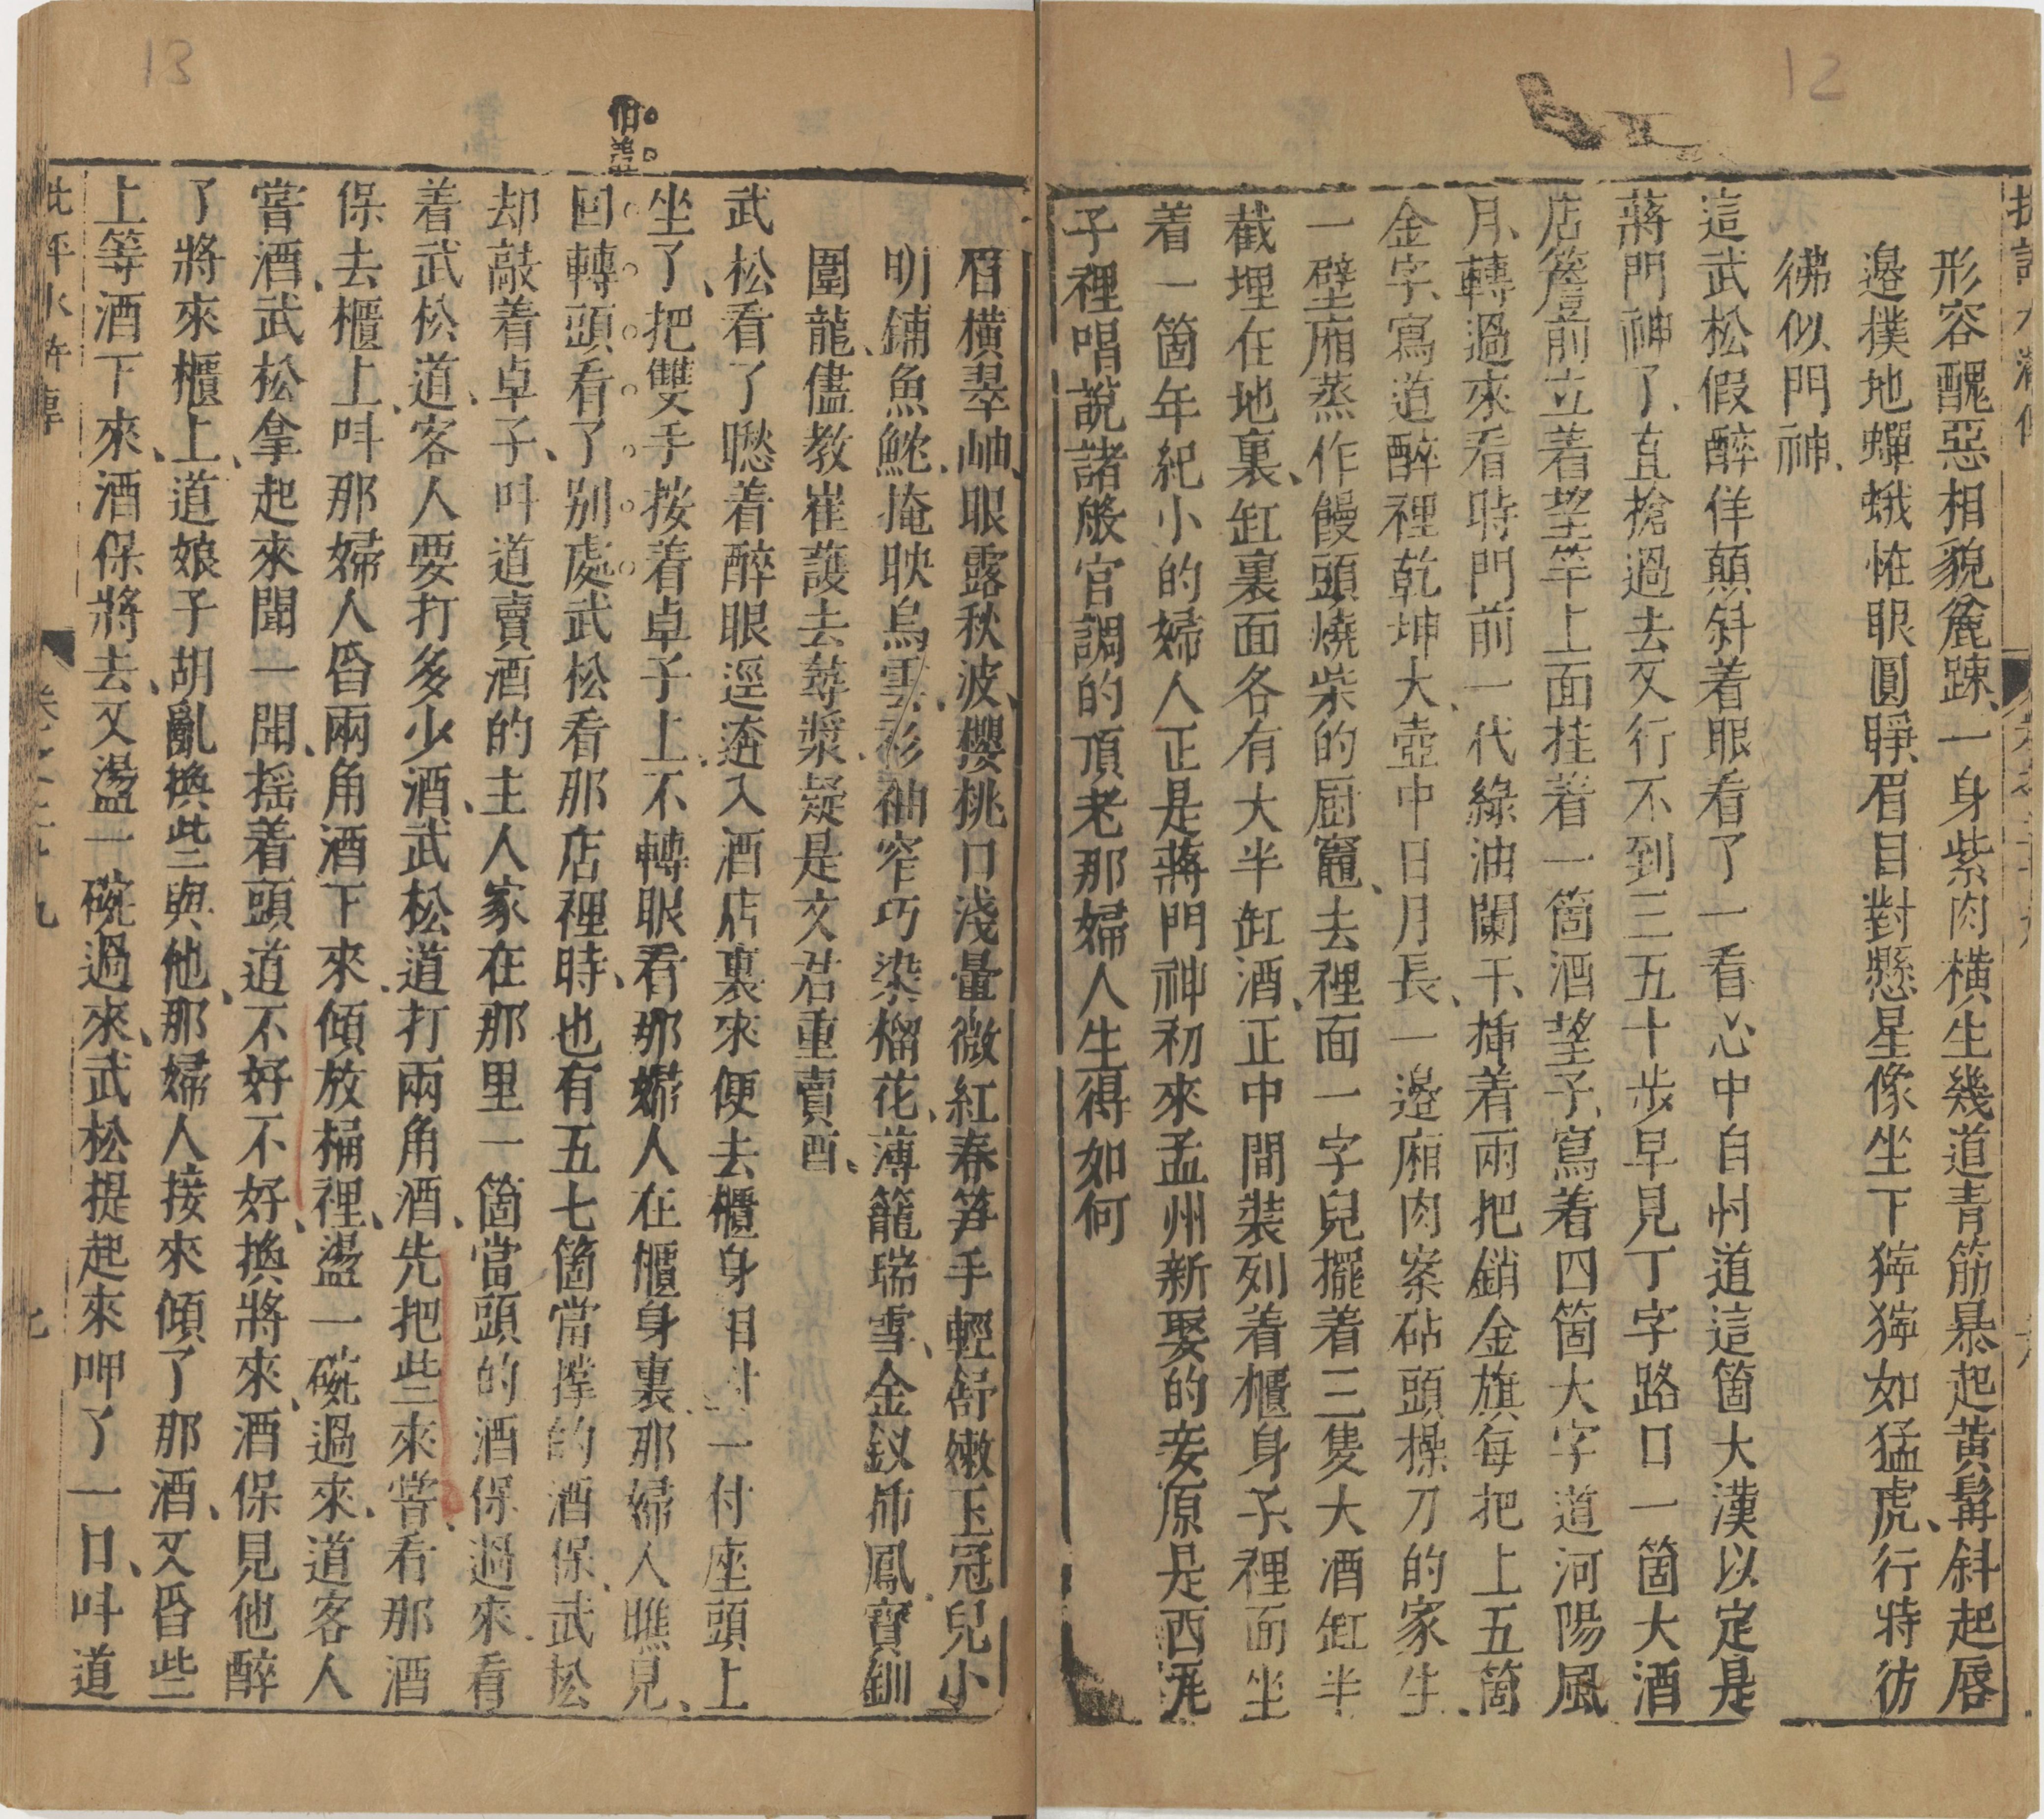 12
形容醜惡相貌麄踈、一身紫肉橫生幾道青筋暴起黃髯斜起唇
邉撲地蟬蛾恠眼圓睜、眉目對懸星像坐下猙獰如猛虎、行時彷
彿似門神、
這武松假醉佯顛斜着眼看了一看心中自忖道這箇大漢以定是
蔣門神了、直搶過去又行不到三五十步早見丁字路口一箇大酒
店簷前立着望竿上面挂着一箇酒望子、寫着四箇大字道河陽風
月、轉過來看時門前一代綠油闌干、揷着兩把銷金旗每把上五箇
金字、寫道醉裡乾坤大、壺中日月長、一邉廂肉案砧頭操刀的家生、
一壁廂蒸作饅頭燒柴的厨竈、去裡面一字兒擺着三隻大酒缸半
截埋在地裏、缸裏面各有大半缸酒、正中間裝列着櫃身子、裡面坐
着一箇年紀小的婦人正是蔣門神初來孟州新娶的妾原是西瓦
子裡唱說諸般宮調的頂老那婦人生得如何
13
眉橫翠岫、眼露秋波、櫻桃口淺暈微紅春笋手輕舒嫩玉冠兒小
明鋪魚魫、掩映烏雲、衫袖窄巧染榴花、薄籠瑞雪、金釵揷鳳、寳釧
圍龍、儘教崔護去尋漿、疑是文君重賣酒、
武松看了瞅着醉眼逕奔入酒店裏來便去櫃身相對一付座頭上
坐了、把雙手按着卓子上、不轉眼看那婦人在櫃身裏、那婦人瞧見、
回轉頭看了別處武松看那店裡時、也有五七箇當撑的酒保、武松
却敲着卓子、叫道賣酒的主人家在那里一箇當頭的酒保過來、看
着武松道、客人要打多少酒、武松道打兩角酒、先把些來嘗、看那酒
保去櫃上、叫那婦人舀兩角酒下來、傾放桶裡、盪一碗過來、道客人
嘗酒、武松拿起來聞一聞、摇着頭道不好不好、換將來、酒保見他醉
了將來櫃上、道娘子胡亂換些與他、那婦人接來傾了那酒、又舀些
上等酒下來、酒保將去、又盪一碗過來、武松提起來呷了一口、叫道